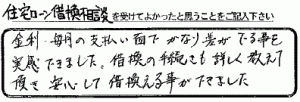 住宅ローン借換相談を受けてよかったと思うことをご記入下さい
金利・毎月の支払い面でかなり差がでる事を
実感できました。借換の手続きも詳しく教えて
頂き安心して借換える事ができました